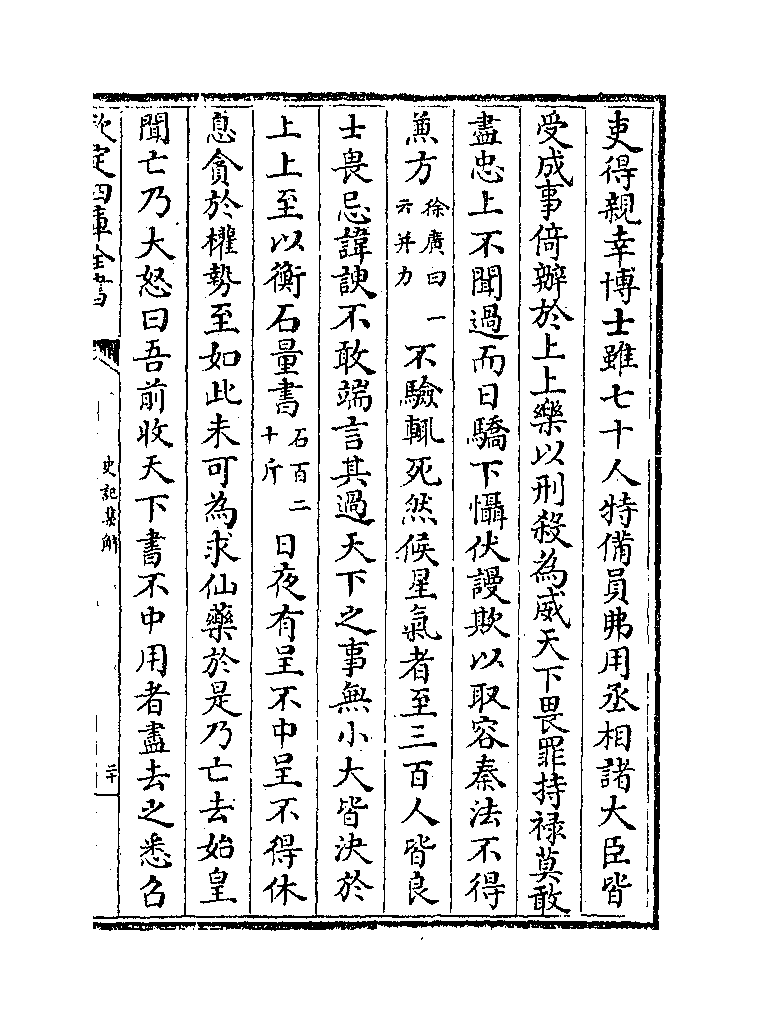 吏得親幸博士雖七十人特備員弗用丞相諸大臣皆
受成事倚辦於上上樂以刑殺為威天下畏罪持禄莫敢
盡忠上不聞過而日驕下懾伏謾欺以取容秦法不得
兼方徐廣曰一云并力不驗輒死然候星氣者至三百人皆良
士畏忌諱諛不敢端言其過天下之事無小大皆決於
上上至以衡石量書石百二十斤日夜有呈不中呈不得休
息貪於權勢至如此未可為求仙藥於是乃亡去始皇
聞亡乃大怒曰吾前收天下書不中用者盡去之悉召
欽定四庫全書
史記集解
二十